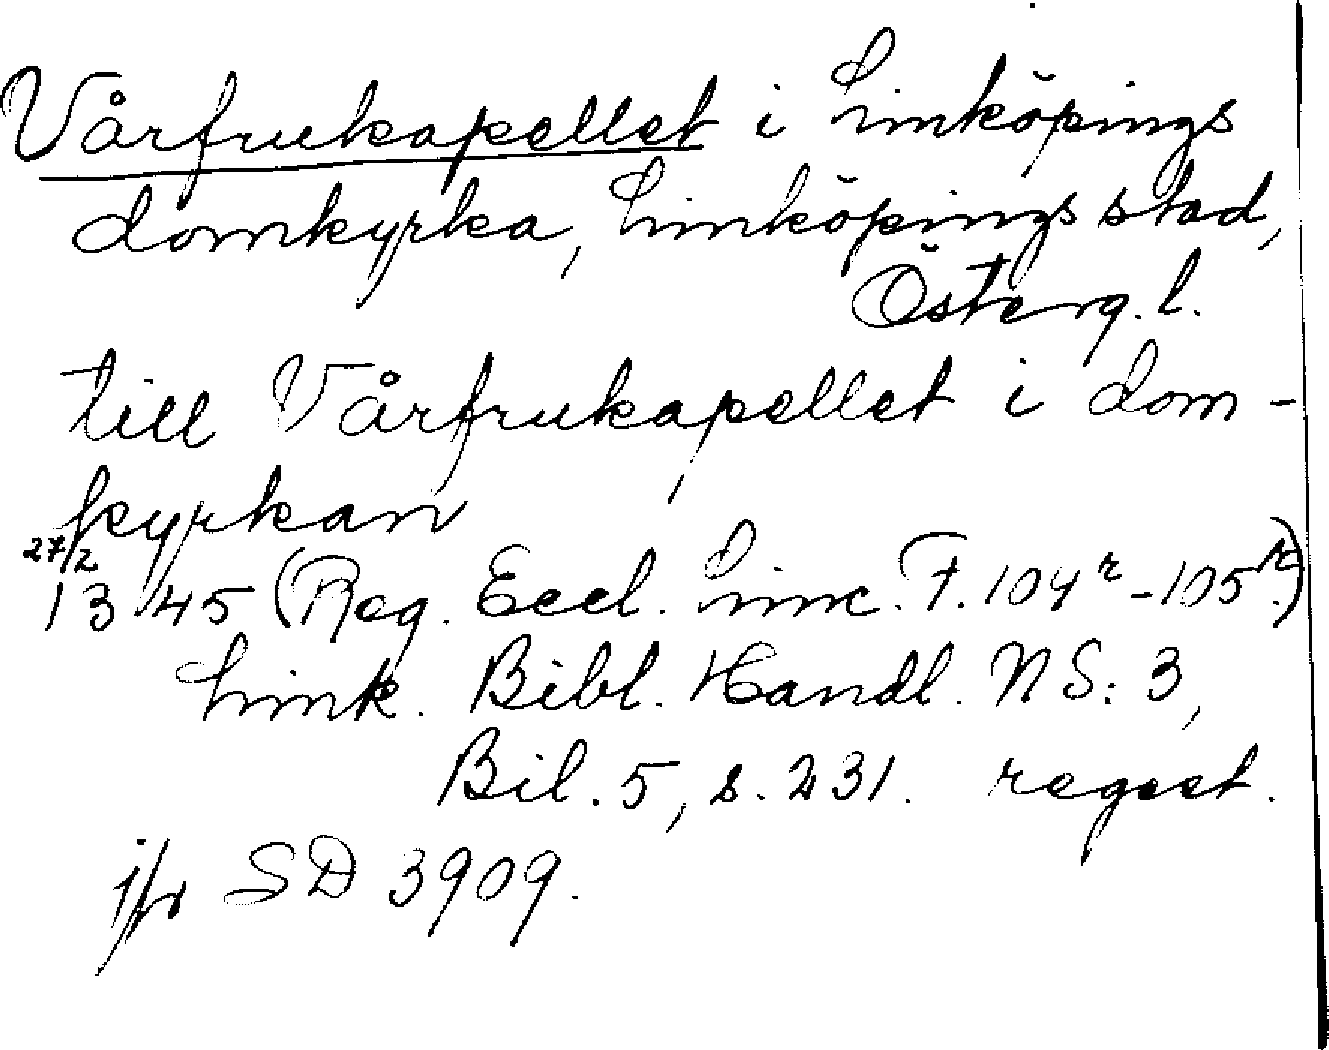 Vårfrukapellet i Linköpings
domkyrka, Linköpings stad,
Österg. l.
till Vårfrukapellet i dom-
kyrkan
27/2
1345 (Reg. Eccl. Linc. F. 104r-105r.)
Link. Bibl. Handl. NS: 3,
Bil. 5, s. 231. regest.
jfr SD 3909.